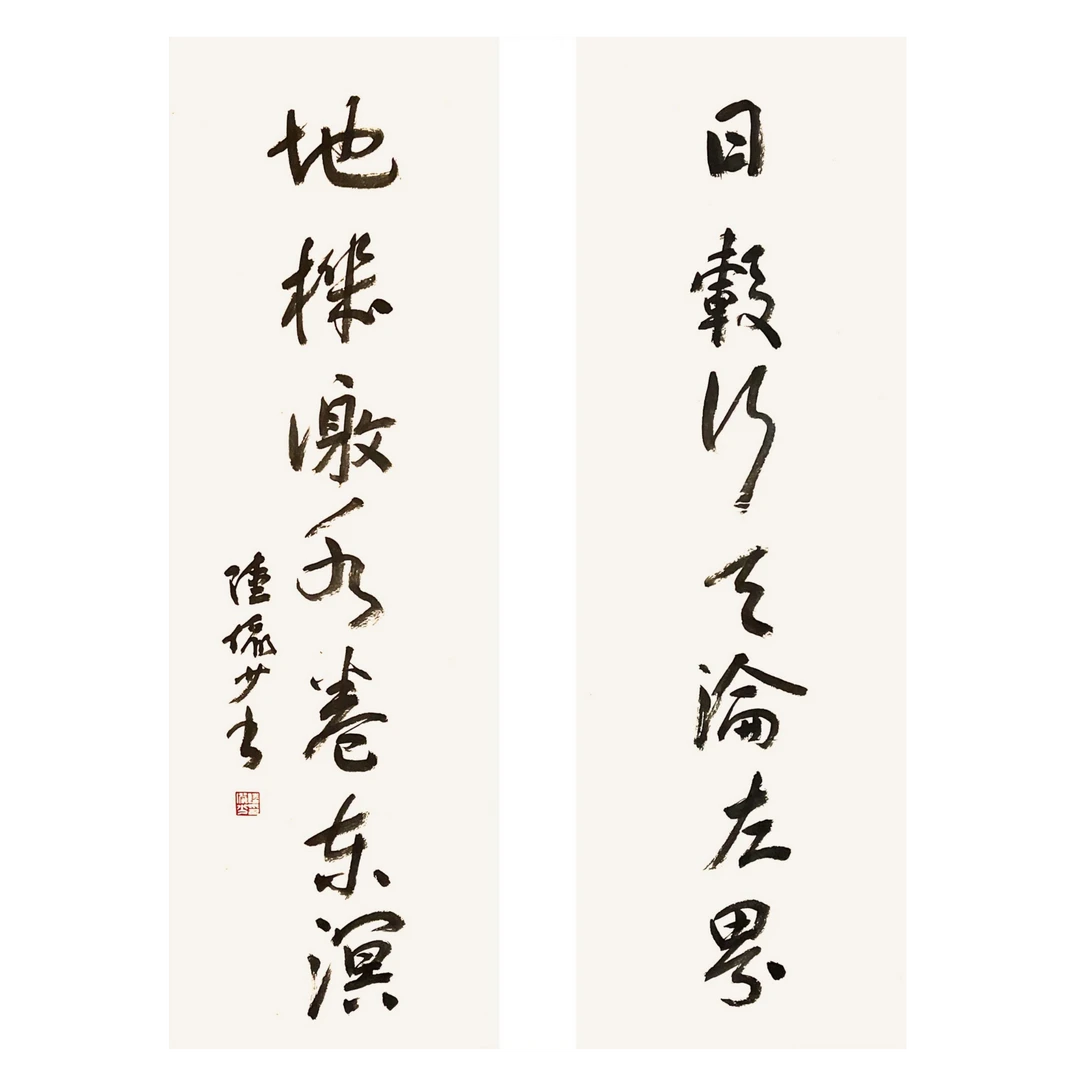 日轂行天淪左界
地機激水卷東溟
陸儼少書